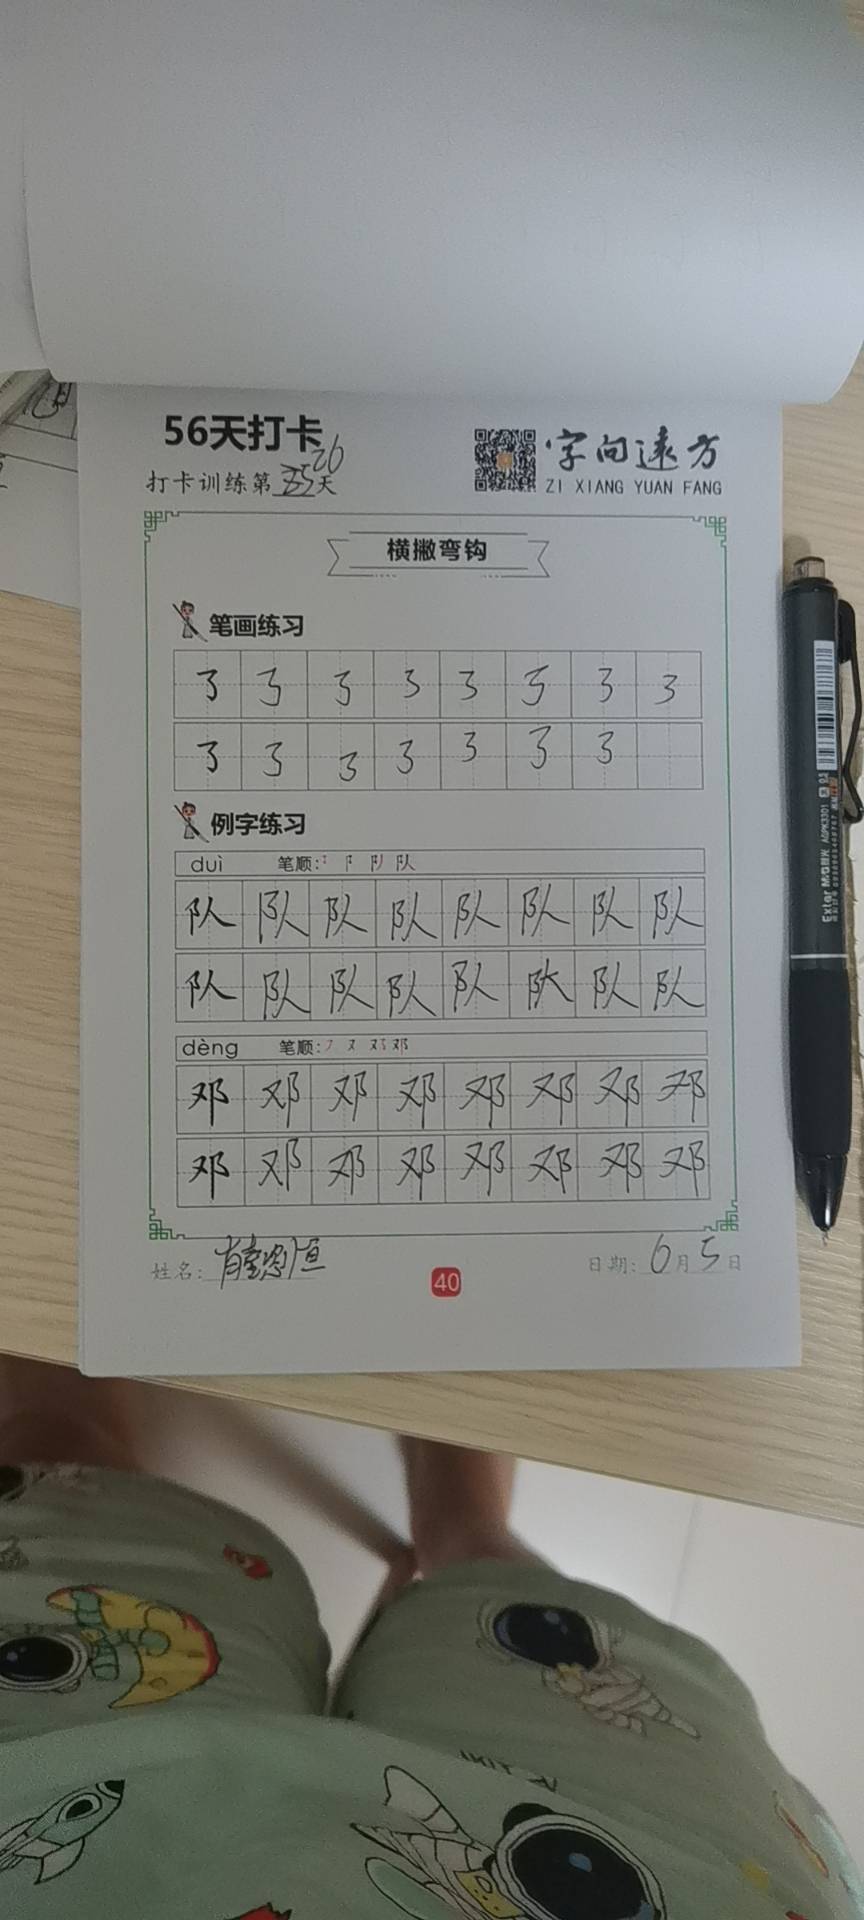 56天打卡
打卡训练第26天
字向远方
ZI XIANG YUAN FANG
横撇弯钩
笔画练习
例字练习
duì 笔顺:
队 队 队 队 队 队 队 队
队 队 队 队 队 队 队 队
dèng 笔顺:
邓 邓 邓 邓 邓 邓 邓 邓
邓 邓 邓 邓 邓 邓 邓 邓
姓名:
日期: 6月5日
40
Exlar M&G晨光 AGPK3301